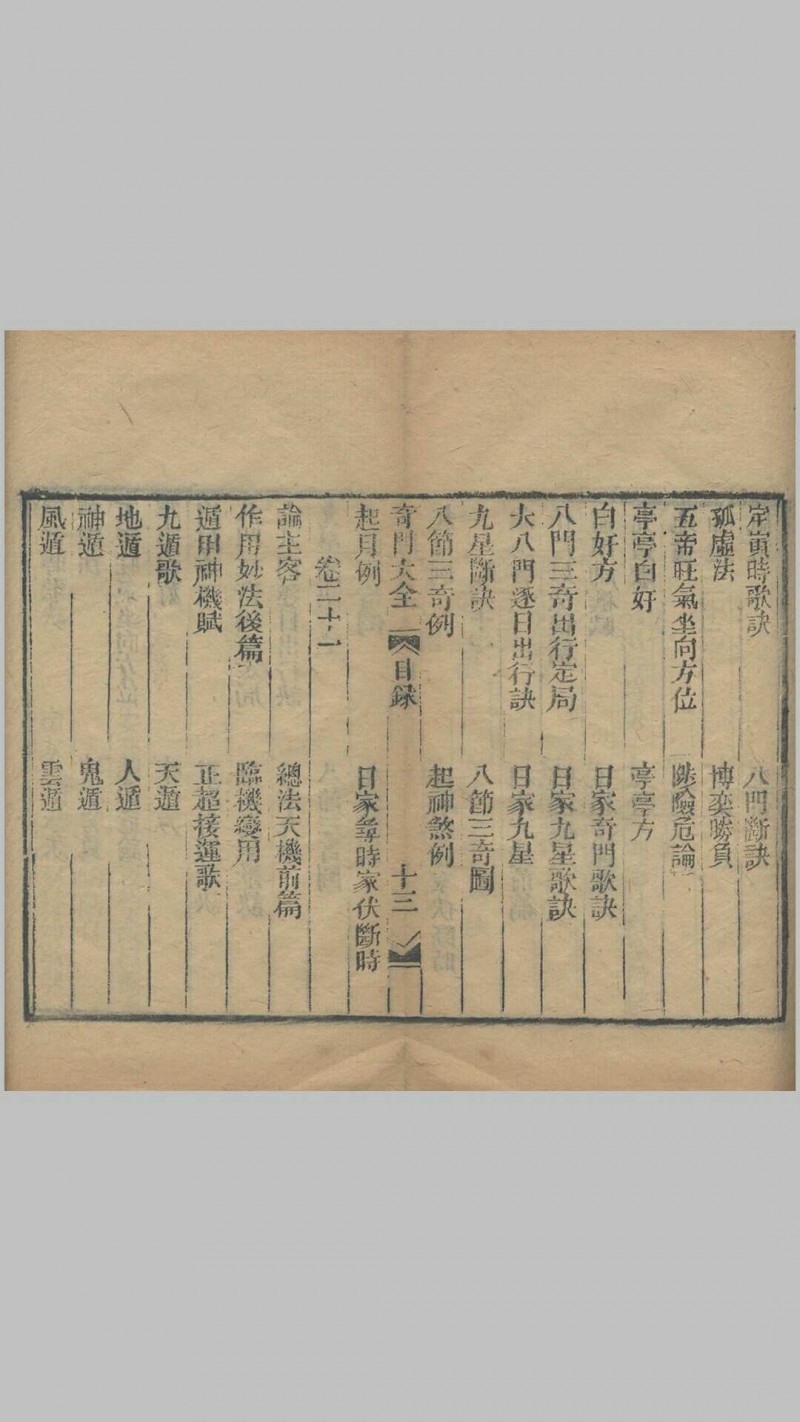 定寅時歌訣 八門斷訣
孤虛法 博奕勝負
五帝旺氣坐向方位 陟險危論
亭亭白奸 亭亭方
白奸方 日家奇門歌訣
八門三奇出行定局 日家九星歌訣
大八門逐日出行訣 日家九星
九星斷訣 八節三奇圖
八節三奇例 起神煞例
奇門大全 目録 十三
起月例 日家尋時家伏斷時
卷二十一
論主客 總法天機前篇
作用妙法後篇 臨機變用
遁甲神機賦 正超接運歌
九遁歌 天遁
地遁 人遁
神遁 鬼遁
風遁 雲遁